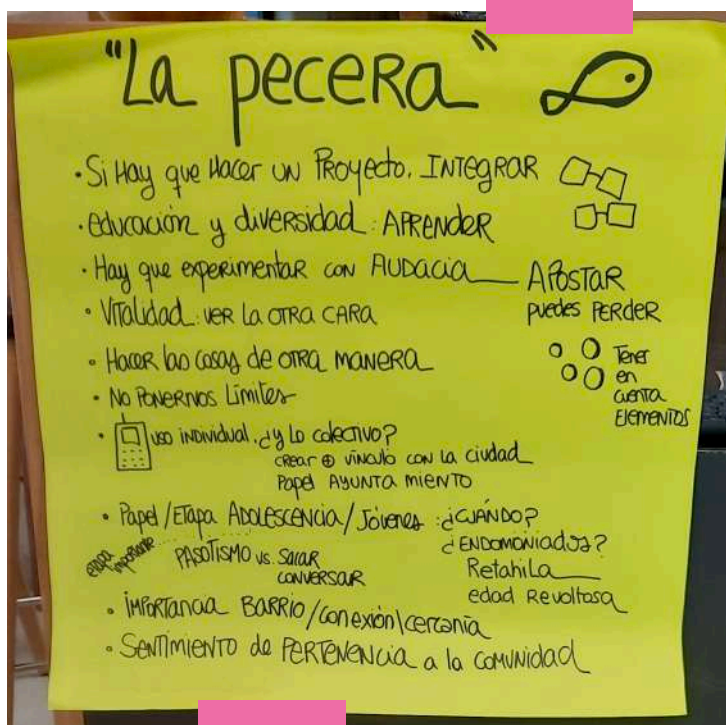 "La pecera"
• Si Hay que Hacer un Proyecto. INTEgRAR
• educación y diversidad: APRENDER
• Hay que experimentar con AUDACIA___ APOSTAR
puedes PERDER
• Vitalidad: ver la otra cara
• Hacer las cosas de otra manera
Tener
en
cuenta
Elementos
• No ponernos límites
• uso individual. ¿y lo colectivo?
crear ⊕ vínculo con la ciudad
Papel AYUNTAMIENTO
• Papel/Etapa Adolescencia/Jóvenes: ¿CUÁNDO?
etapa importante
PASOTISMO vs. Sacar
CONVERSAR
¿ENDOMONIADOS?
Retahila
edad Revoltosa
• importancia BARRIO/conexión\cercanía
• Sentimiento de PERTENENCIA a la comunidad